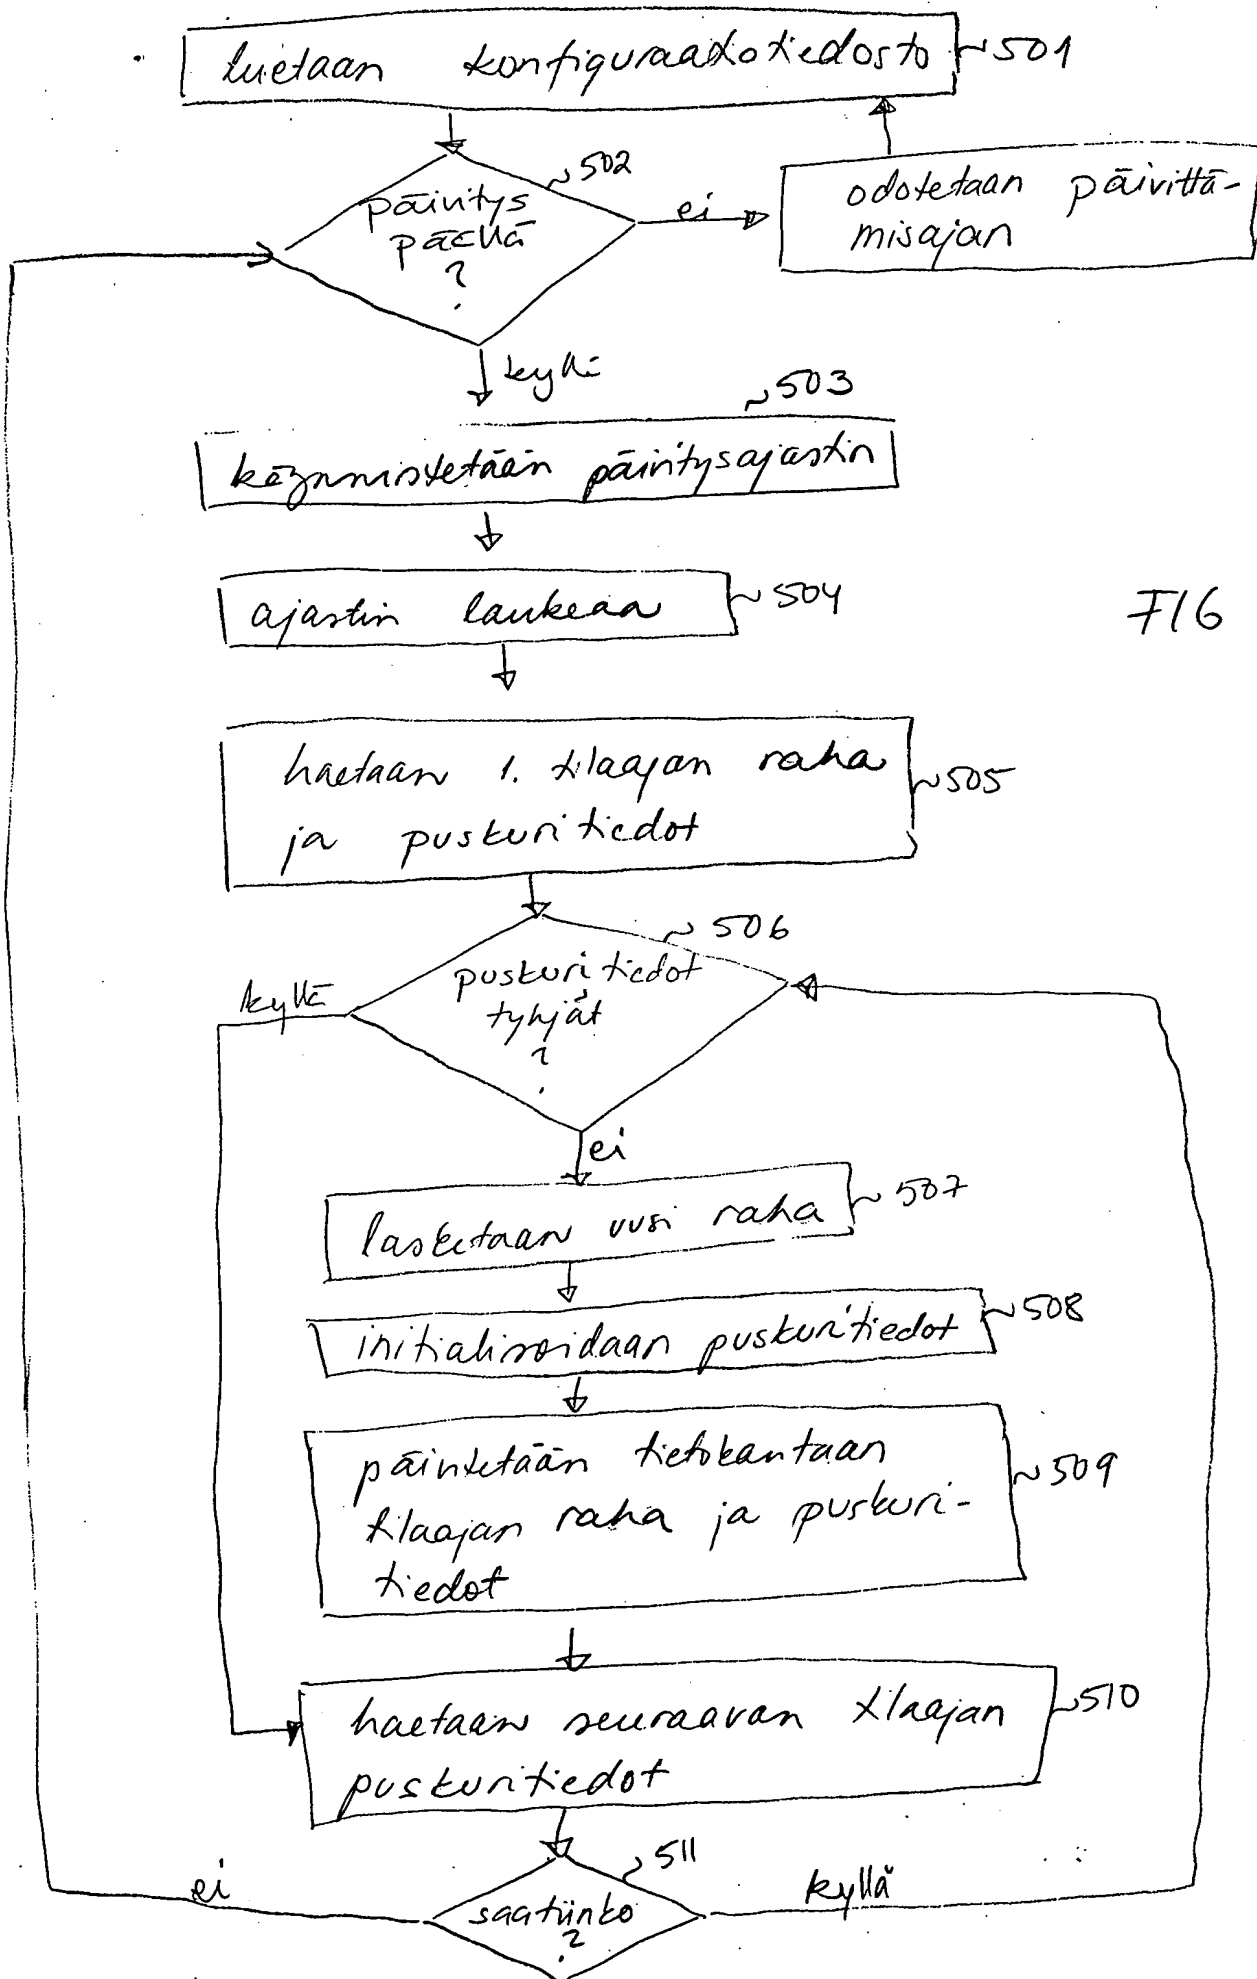 luetaan konfiguraatiotiedosto 501
502
päivitys
päällä
?
ei
odotetaan päivittä-
misajan
kyllä
503
käynnistetään päivitysajastin
ajastin laukeaa 504
FIG
haetaan 1. tilaajan raha
ja puskuritiedot
505
506
puskuritiedot
tyhjät
?
kyllä
ei
lasketaan uusi raha 507
initialisoidaan puskuritiedot 508
päivitetään tietokantaan
tilaajan raha ja puskuri-
tiedot
509
haetaan seuraavan tilaajan
puskuritiedot
510
511
saatiinko
?
ei
kyllä